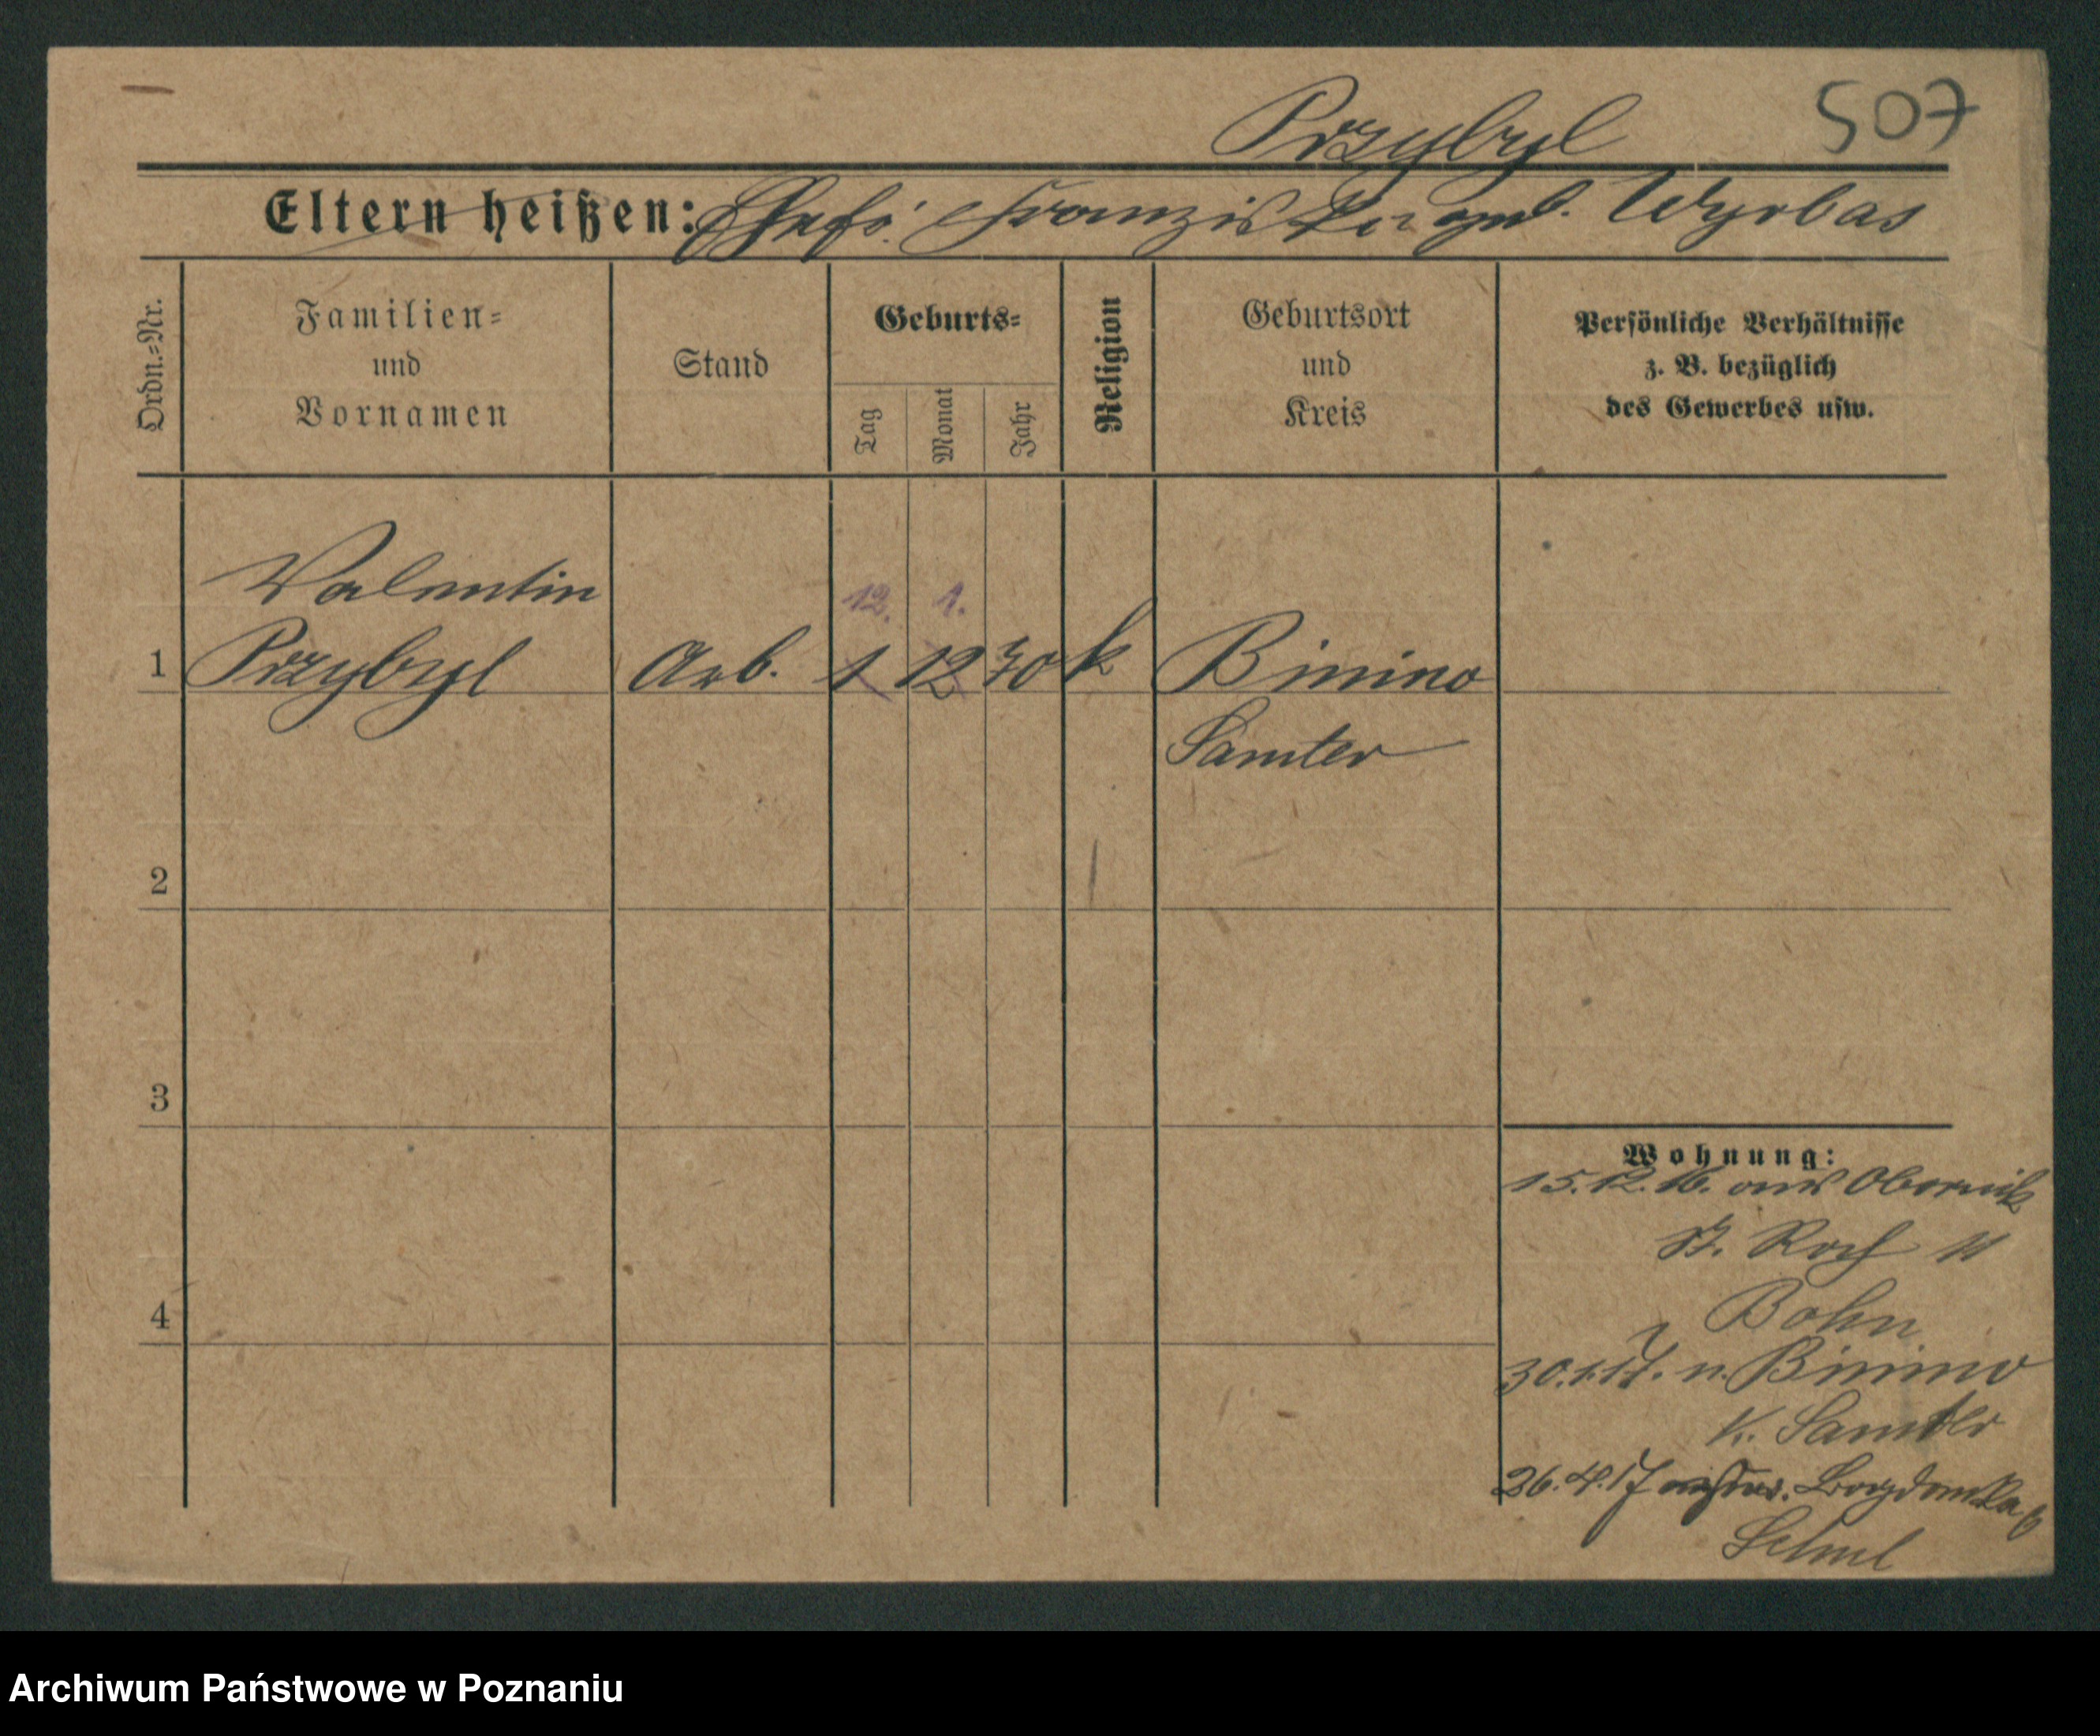 Przybyl 507
Eltern heißen: Ehefr: Franziska geb. Wyrbas
Ordn.=Nr.
Familien=
und
Vornamen
Stand
Geburts=
Tag
Monat
Jahr
Religion
Geburtsort
und
Kreis
Persönliche Verhältnisse
z. B. bezüglich
des Gewerbes usw.
Valentin
12. 1.
1 Przybyl Arb. 1 12 70 k Binino
Samter
2
3
4
Wohnung:
15.12.16. aus Obornik
St. Roch 11
Bohn
30.1.17. n. Binino
K. Samter
26.4.17 Bogdanka 6
Archiwum Państwowe w Poznaniu